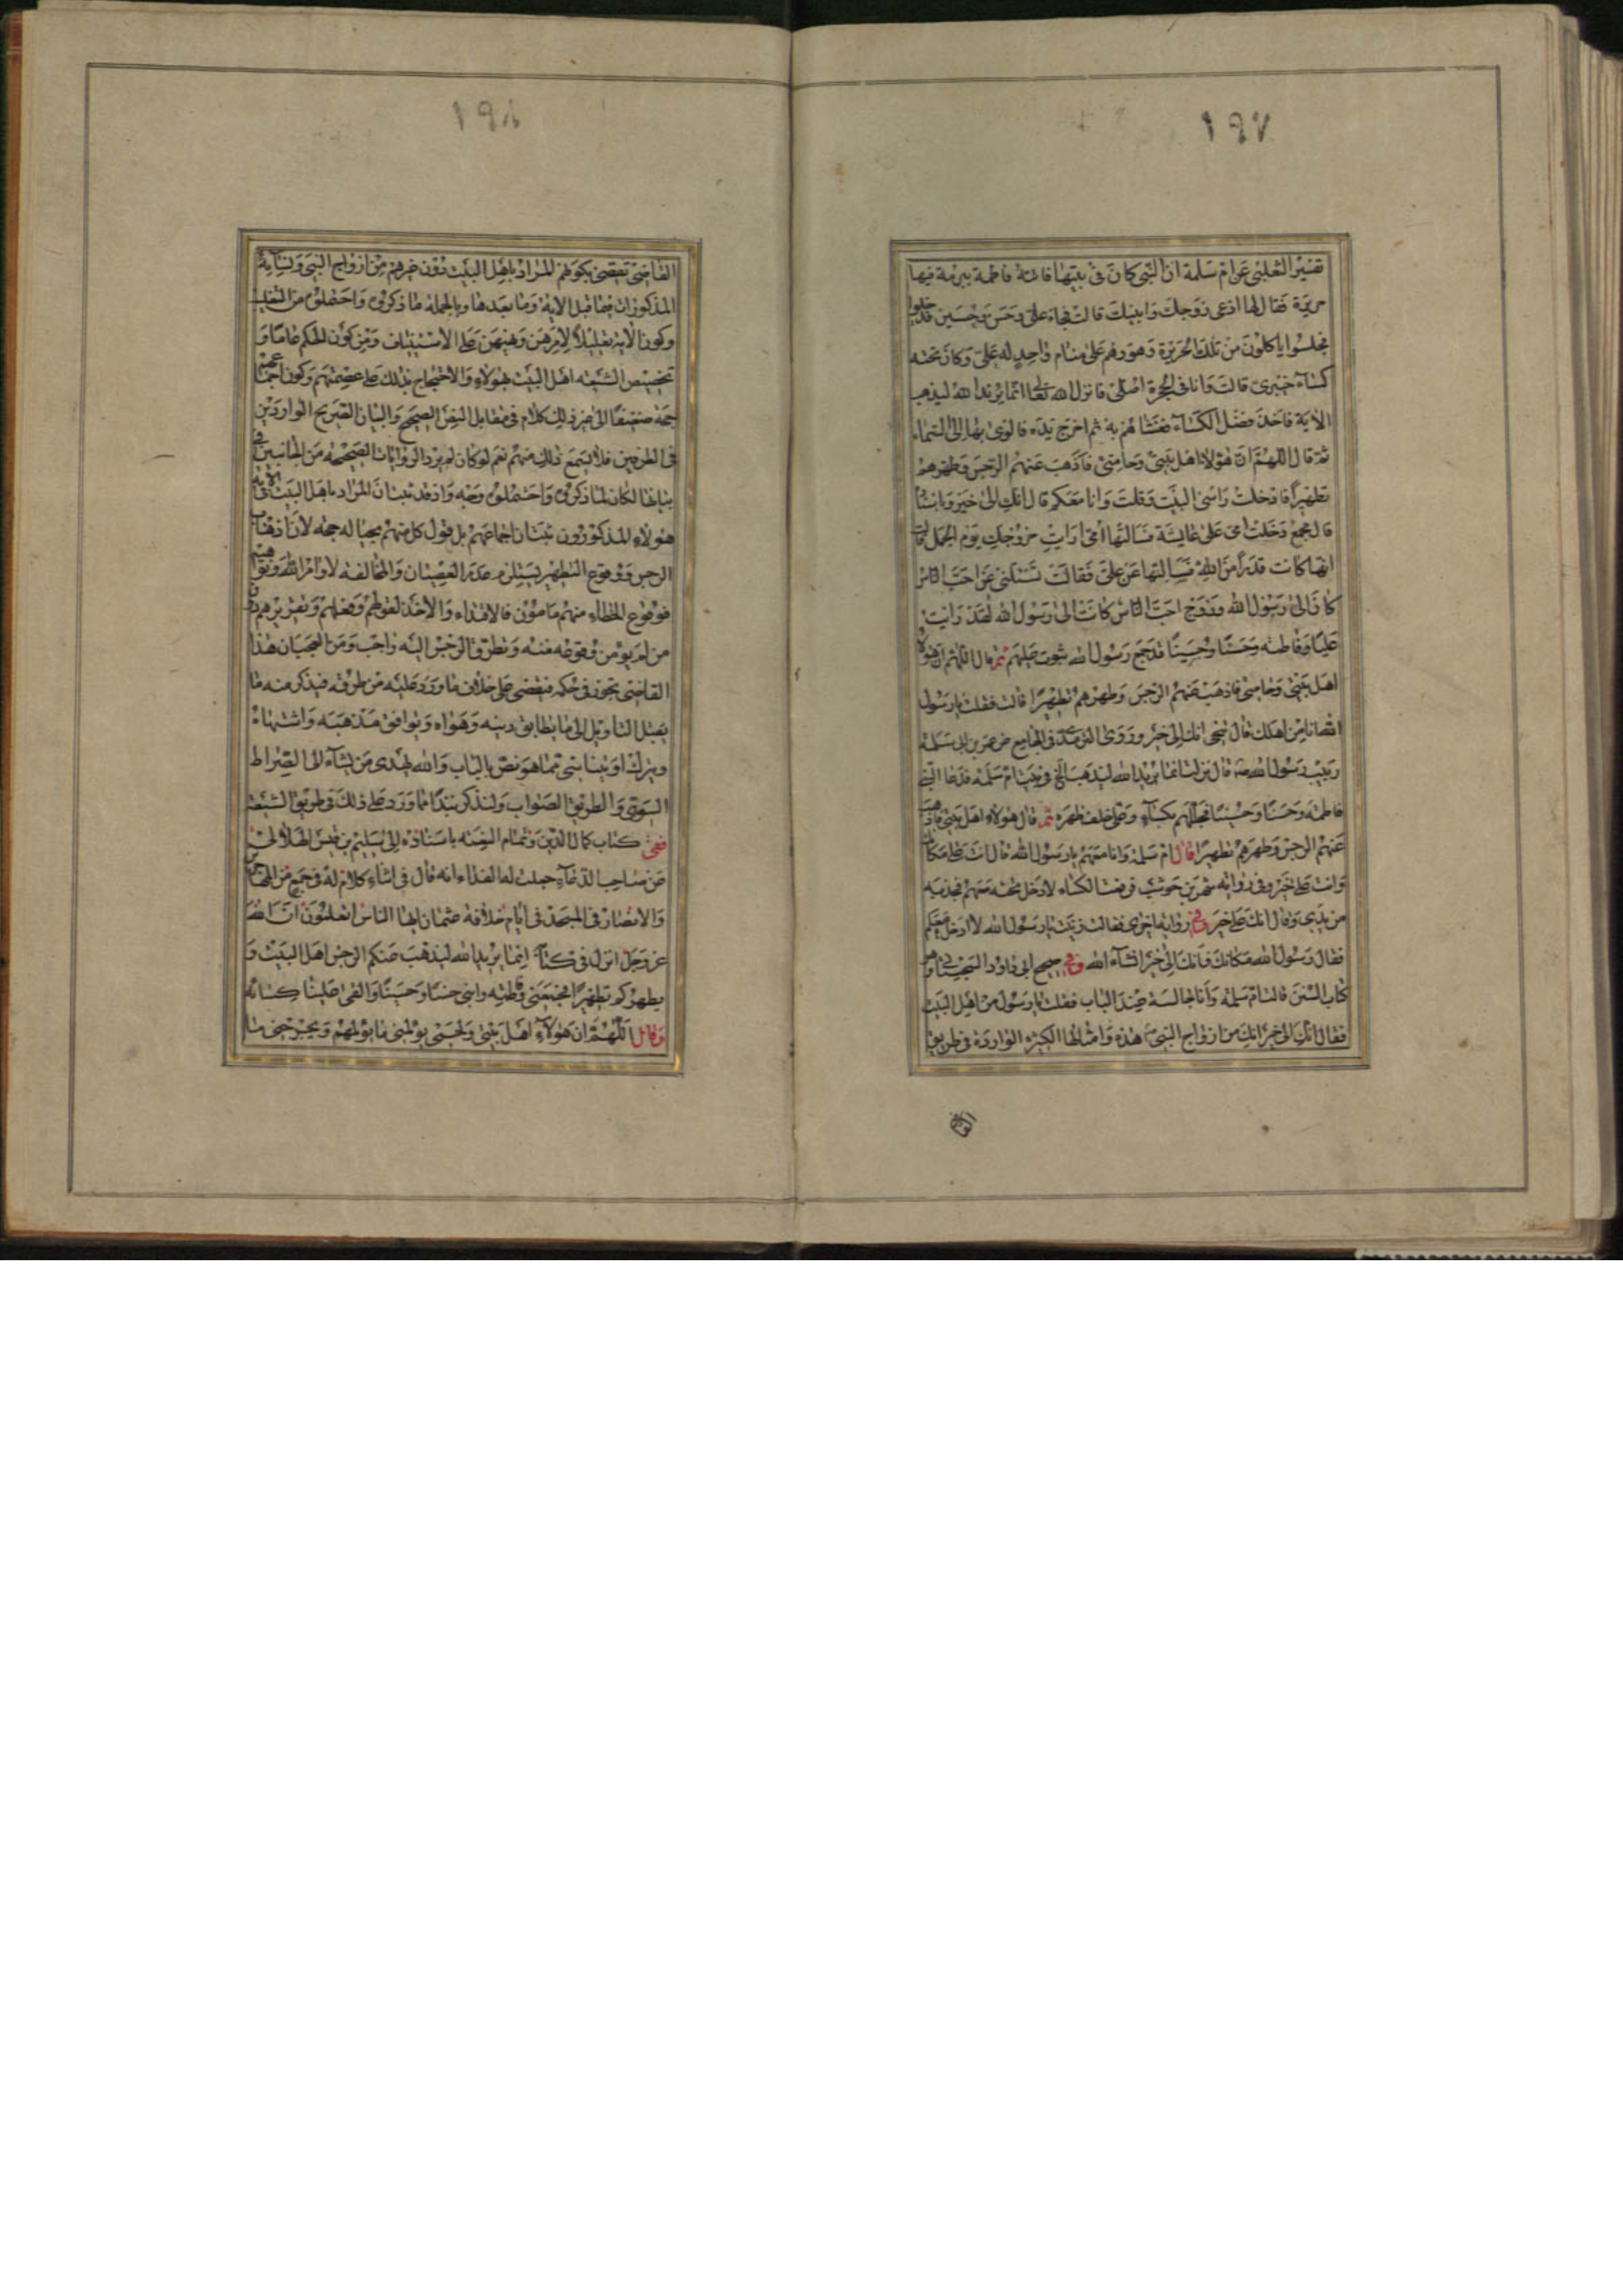 ١٩٧
تفسير الثعلبى عن ام سلمة ان النبى كان فى بيتها فاتته فاطمة ببرمة فيها
حريرة فقال لها ادعى زوجك وابنيك قالت فجاء على وحسن وحسين فدخلوا
فجلسوا ياكلون من تلك الحريرة وهو وهم على منام واحد له على وكان تحته
كساء خيبرى قالت وانا فى الحجرة اصلى فانزل الله تعالى انما يريد الله ليذهب
الاية فاخذ فضل الكساء فغشاهم به ثم اخرج يده فالوى بها الى السماء
ثم قال اللهم ان هولاء اهل بيتى وحامتى فاذهب عنهم الرجس وطهرهم
تطهيرا فادخلت راسى البيت وقلت وانا معكم قال انك الى خير وباسناده
قال مجمع دخلت امى على عايشة فسالتها امى ارايت خروجك يوم الجمل قالت
انها كانت قدرا من الله فسالتها عن على فقالت تسئلنى عن احب الناس
كان الى رسول الله وزوج احب الناس كانت الى رسول الله لقد رايت
عليا وفاطمه وحسنا وحسينا قد جمع رسول الله بثوب عليهم ثم قال اللهم ان هولاء
اهل بيتى وحامتى فاذهب عنهم الرجس وطهرهم تطهيرا قالت فقلت يا رسول
الله انا من اهلك قال تنحى انك الى خير وروى الترمذى فى الجامع عن عمر بن ابى سلمة
ربيب رسول الله قال نزلت انما يريد الله ليذهب الخ فى بيت ام سلمه فدعا النبى
فاطمه وحسنا وحسينا فجللهم بكساء وعلى خلف ظهره ثم قال هولاء اهل بيتى فاذهب
عنهم الرجس وطهرهم تطهيرا قال ام سلمة وانا معهم يا رسول الله قال انت على مكانك
وانت على خير وفى رواية شهر بن حوشب فرفعت الكساء لادخل تحته معهم فجذبه
من يدى وقال انك على خير وفى رواية اخرى فقالت زينب يا رسول الله الا ادخل معكم
فقال رسول الله مكانك فانك الى خير انشاء الله وفى صحيح ابى داود السجستانى وهو
كتاب السنن قالت ام سلمه وانا جالسة عند الباب فقلت يا رسول من اهل البيت
فقال انك الى خير انك من ازواج النبى هذه وامثالها الكثيرة الواردة فى طريق
القاضى
١٩٨
القاضى تقضى بكونهم المراد باهل البيت دون غيرهم من ازواج النبى ونسائه
المذكورات فيما قبل الاية وما بعدها وبالجملة ما ذكروه واحتملوه من التغليب
وكون الاية تعليلا لامرهن ونهيهن على الاستيناف ومن كون الحكم عاما و
تخصيص الشيعه اهل البيت بهولاء والاحتجاج بذلك على عصمتهم وكون اجماعهم
حجة ضعيفا الى غير ذلك كلام فى مقابل النص الصحيح والبيان الصريح الواردين
فى الطرفين فلا يسمع ذلك منهم نعم لو كان لم يرد الروايات الصحيحه من الجانبين فى
بيانها لكان لما ذكروه واحتملوه وجه واذ قد تبين ان المراد باهل البيت فى الاية
هولاء المذكورون ثبت ان اجماعهم بل قول كل منهم بحياله حجه لان اذهاب
الرجس ووقوع التطهير يستلزم عدم العصيان والمخالفه لاوامر الله ونواهيه
فوقوع الخطاء منهم مامون فالاقتداء والاخذ لقولهم وفعلهم وتقريرهم دون
من لم يومن وقوعه منه وتطرق الرجس اليه واجب ومن العجب ان هذا
القاضى تجوز فى حكمه فيقضى على خلاف ما ورد عليه من طرقه فيذكر منه ما
يقبل التاويل الى ما يطابق دينه وهواه ويوافق مذهبه واشتهاه
ويترك او ينسا شى مما هو نص بالباب والله يهدى من يشاء الى الصراط
السوى والطريق الصواب ولنذكر نبذا مما ورد على ذلك فى طريق الشيعة
ففى كتاب كمال الدين وتمام النعمه باسناده الى سليم بن قيس الهلالى
عن صاحب الدعاء جعلت له الفداء انه قال فى اثناء كلام له فى جمع من المهاجرين
والانصار فى المسجد فى ايام خلافة عثمان ايها الناس اتعلمون ان الله
عز وجل انزل فى كتابه انما يريد الله ليذهب عنكم الرجس اهل البيت و
يطهركم تطهيرا فجمعنى وفاطمه وابنى حسنا وحسينا والقى علينا كسائه
وقال اللهم ان هولاء اهل بيتى ولحمتى يولمنى ما يولمهم ويجرحنى ما